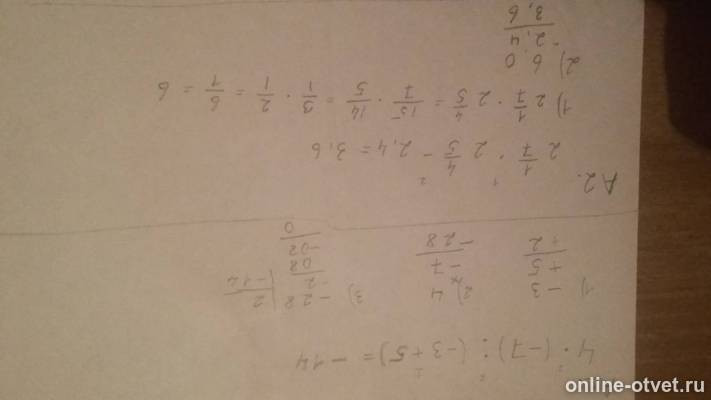 4 · (-7) : (-3+5) = -14
1) -3
+5
+2
2) 4
-7
-28
3) -28 | 2
-2 | -14
08
-02
0
A2.
2 1/7 · 2 4/5 - 2,4 = 3,6
1) 2 1/7 · 2 4/5 = 15/7 · 14/5 = 3/1 · 2/1 = 6/1 = 6
2) 6,0
-2,4
3,6
online-otvet.ru